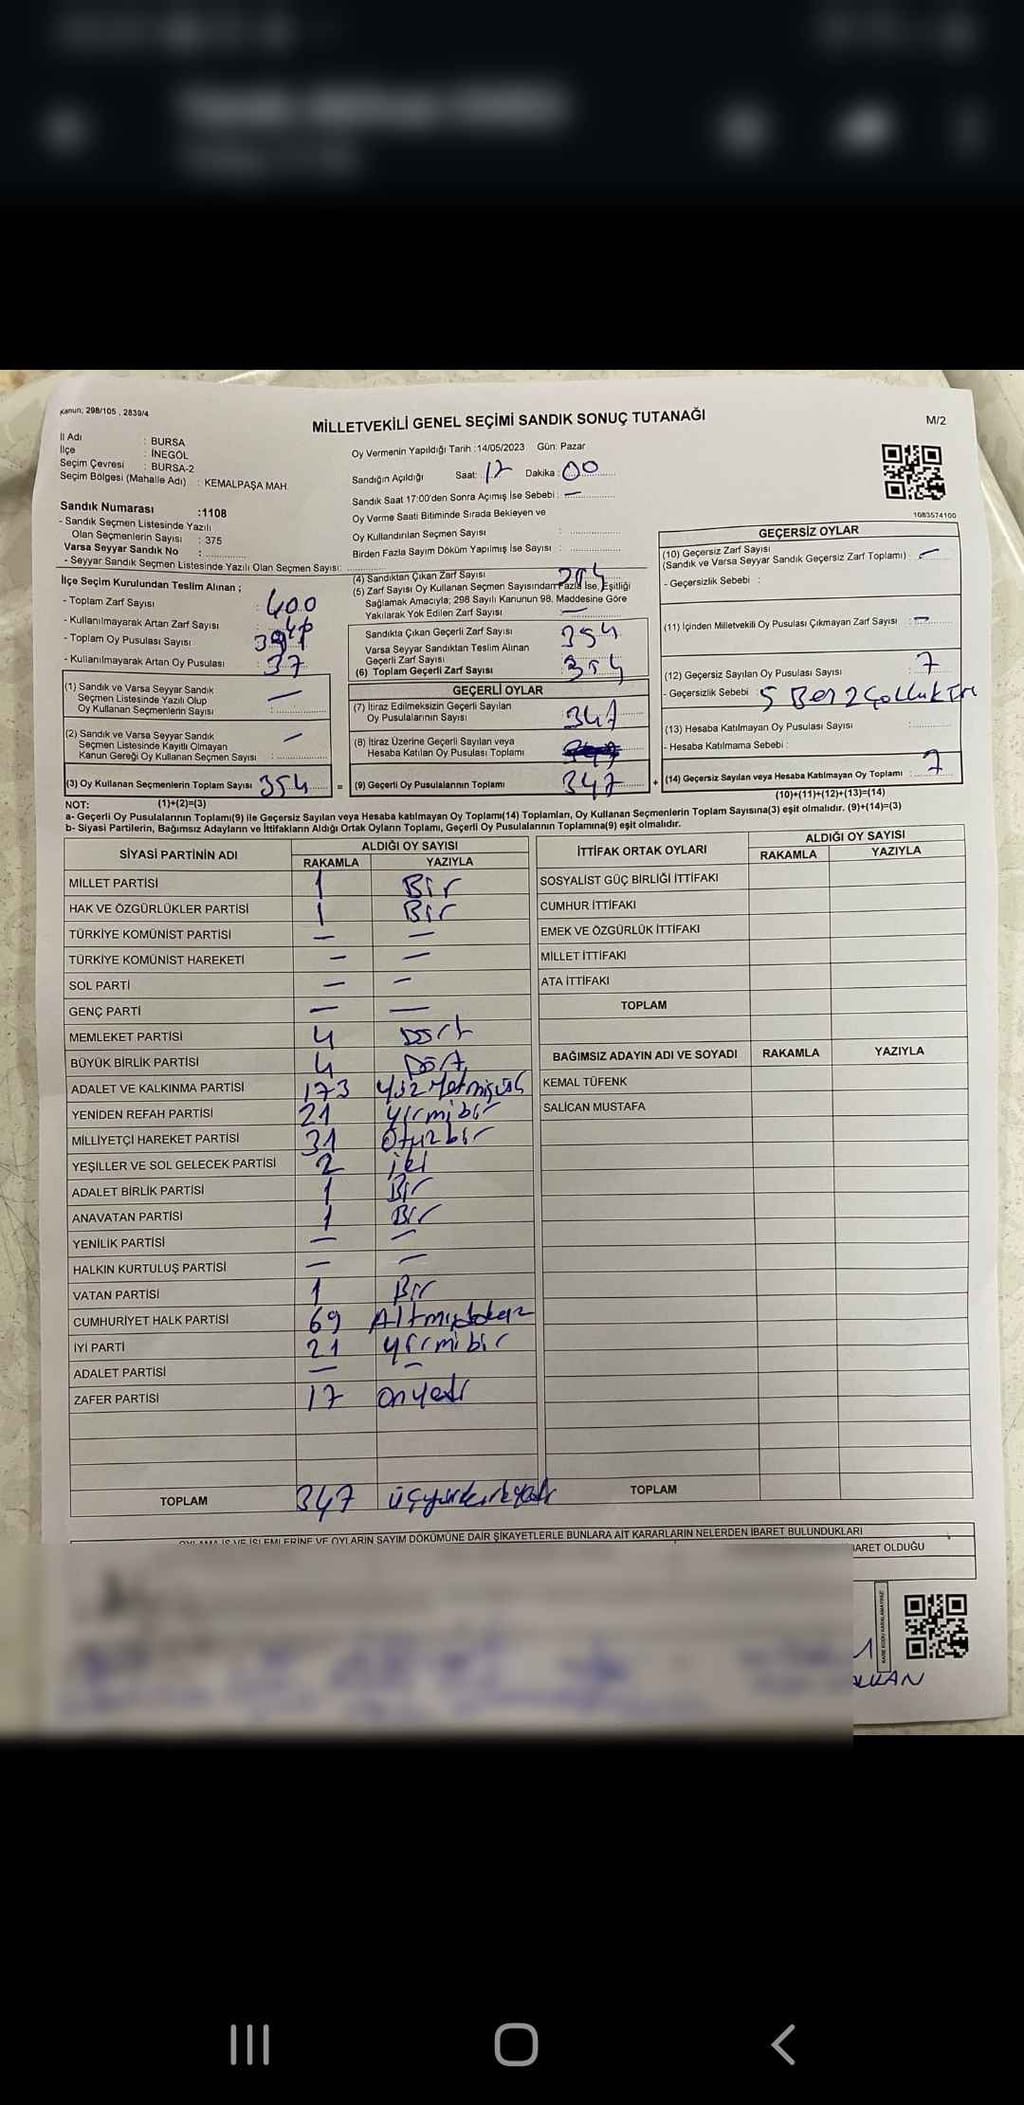 Kanun; 298/105 , 2839/4
MİLLETVEKİLİ GENEL SEÇİMİ SANDIK SONUÇ TUTANAĞI
M/2
İl Adı : BURSA
İlçe : İNEGÖL
Seçim Çevresi : BURSA-2
Seçim Bölgesi (Mahalle Adı) : KEMALPAŞA MAH.
Sandık Numarası :1108
- Sandık Seçmen Listesinde Yazılı
Olan Seçmenlerin Sayısı : 375
Varsa Seyyar Sandık No :
- Seyyar Sandık Seçmen Listesinde Yazılı Olan Seçmen Sayısı:
Oy Vermenin Yapıldığı Tarih :14/05/2023 Gün: Pazar
Sandığın Açıldığı Saat: 17 Dakika : 00
Sandık Saat 17:00'den Sonra Açımış İse Sebebi : —
Oy Verme Saati Bitiminde Sırada Bekleyen ve
Oy Kullandırılan Seçmen Sayısı :
Birden Fazla Sayım Döküm Yapılmış İse Sayısı :
1083574100
İlçe Seçim Kurulundan Teslim Alınan ;
- Toplam Zarf Sayısı : 400
- Kullanılmayarak Artan Zarf Sayısı :
- Toplam Oy Pusulası Sayısı :
- Kullanılmayarak Artan Oy Pusulası : 37
(1) Sandık ve Varsa Seyyar Sandık
Seçmen Listesinde Yazılı Olup
Oy Kullanan Seçmenlerin Sayısı : —
(2) Sandık ve Varsa Seyyar Sandık
Seçmen Listesinde Kayıtlı Olmayan
Kanun Gereği Oy Kullanan Seçmen Sayısı : —
(3) Oy Kullanan Seçmenlerin Toplam Sayısı 354 =
(4) Sandıktan Çıkan Zarf Sayısı
(5) Zarf Sayısı Oy Kullanan Seçmen Sayısından Fazla İse, Eşitliği
Sağlamak Amacıyla; 298 Sayılı Kanunun 98. Maddesine Göre
Yakılarak Yok Edilen Zarf Sayısı —
Sandıkta Çıkan Geçerli Zarf Sayısı 354
Varsa Seyyar Sandıktan Teslim Alınan
Geçerli Zarf Sayısı
(6) Toplam Geçerli Zarf Sayısı 354
GEÇERLİ OYLAR
(7) İtiraz Edilmeksizin Geçerli Sayılan
Oy Pusulalarının Sayısı 347
(8) İtiraz Üzerine Geçerli Sayılan veya
Hesaba Katılan Oy Pusulası Toplamı
(9) Geçerli Oy Pusulalarının Toplamı 347 +
GEÇERSİZ OYLAR
(10) Geçersiz Zarf Sayısı
(Sandık ve Varsa Seyyar Sandık Geçersiz Zarf Toplamı) : —
- Geçersizlik Sebebi :
(11) İçinden Milletvekili Oy Pusulası Çıkmayan Zarf Sayısı : —
(12) Geçersiz Sayılan Oy Pusulası Sayısı 7
- Geçersizlik Sebebi 5 2
(13) Hesaba Katılmayan Oy Pusulası Sayısı
- Hesaba Katılmama Sebebi :
(14) Geçersiz Sayılan veya Hesaba Katılmayan Oy Toplamı : 7
NOT: (1)+(2)=(3)
(10)+(11)+(12)+(13)=(14)
a- Geçerli Oy Pusulalarının Toplamı(9) ile Geçersiz Sayılan veya Hesaba katılmayan Oy Toplamı(14) Toplamları, Oy Kullanan Seçmenlerin Toplam Sayısına(3) eşit olmalıdır. (9)+(14)=(3)
b- Siyasi Partilerin, Bağımsız Adayların ve İttifakların Aldığı Ortak Oyların Toplamı, Geçerli Oy Pusulalarının Toplamına(9) eşit olmalıdır.
SİYASİ PARTİNİN ADI
ALDIĞI OY SAYISI
RAKAMLA YAZIYLA
MİLLET PARTİSİ 1 Bir
HAK VE ÖZGÜRLÜKLER PARTİSİ 1 Bir
TÜRKİYE KOMÜNİST PARTİSİ — —
TÜRKİYE KOMÜNİST HAREKETİ — —
SOL PARTİ — —
GENÇ PARTİ — —
MEMLEKET PARTİSİ 4 Dört
BÜYÜK BİRLİK PARTİSİ 4 Dört
ADALET VE KALKINMA PARTİSİ 173 Yüz Yetmişüç
YENİDEN REFAH PARTİSİ 21 Yirmibir
MİLLİYETÇİ HAREKET PARTİSİ 31 Otuzbir
YEŞİLLER VE SOL GELECEK PARTİSİ 2 iki
ADALET BİRLİK PARTİSİ 1 Bir
ANAVATAN PARTİSİ 1 Bir
YENİLİK PARTİSİ — —
HALKIN KURTULUŞ PARTİSİ — —
VATAN PARTİSİ 1 Bir
CUMHURİYET HALK PARTİSİ 69 Altmışdokuz
İYİ PARTİ 21 Yirmibir
ADALET PARTİSİ — —
ZAFER PARTİSİ 17 onyedi
TOPLAM 347 üçyüzkırkyedi
İTTİFAK ORTAK OYLARI
ALDIĞI OY SAYISI
RAKAMLA YAZIYLA
SOSYALİST GÜÇ BİRLİĞİ İTTİFAKI
CUMHUR İTTİFAKI
EMEK VE ÖZGÜRLÜK İTTİFAKI
MİLLET İTTİFAKI
ATA İTTİFAKI
TOPLAM
BAĞIMSIZ ADAYIN ADI VE SOYADI RAKAMLA YAZIYLA
KEMAL TÜFENK
SALİCAN MUSTAFA
TOPLAM
OYLAMA İŞ VE İŞLEMLERİNE VE OYLARIN SAYIM DÖKÜMÜNE DAİR ŞİKAYETLERLE BUNLARA AİT KARARLARIN NELERDEN İBARET BULUNDUKLARI
OLDUĞU